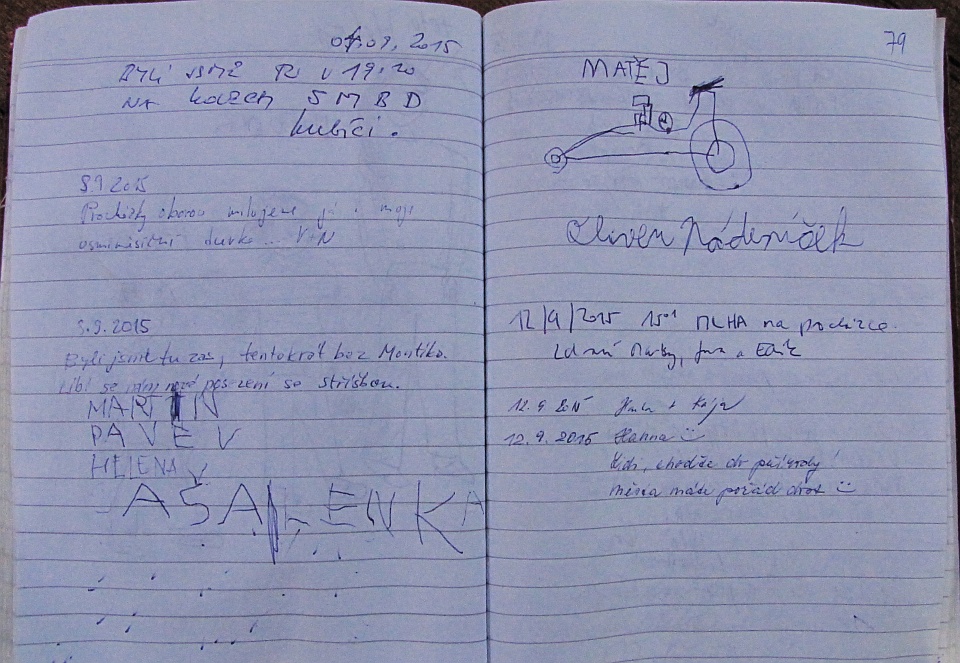 07.09.2015
BYLI JSME TU V 19:20
NA KOLECH SMBD
kubíci.
8.9.2015
Procházky oborou milujeme já i moje
osmiměsíční dcerka... V+N
9.9.2015
Byli jsme tu zas, tentokrát bez Montika.
Líbí se nám nové posezení se stříškou.
MARTIN
PAVEL
HELENA
A ŠA LENKA
79
MATĚJ
Oliver Nádeníček
12/9/2015 1501 MLHA na procházce.
Zdraví Marky, a Edík
12.9.2015 + Kája
12.9.2015 Hanna
Lidi, choďte do přírody
máte pořád dost